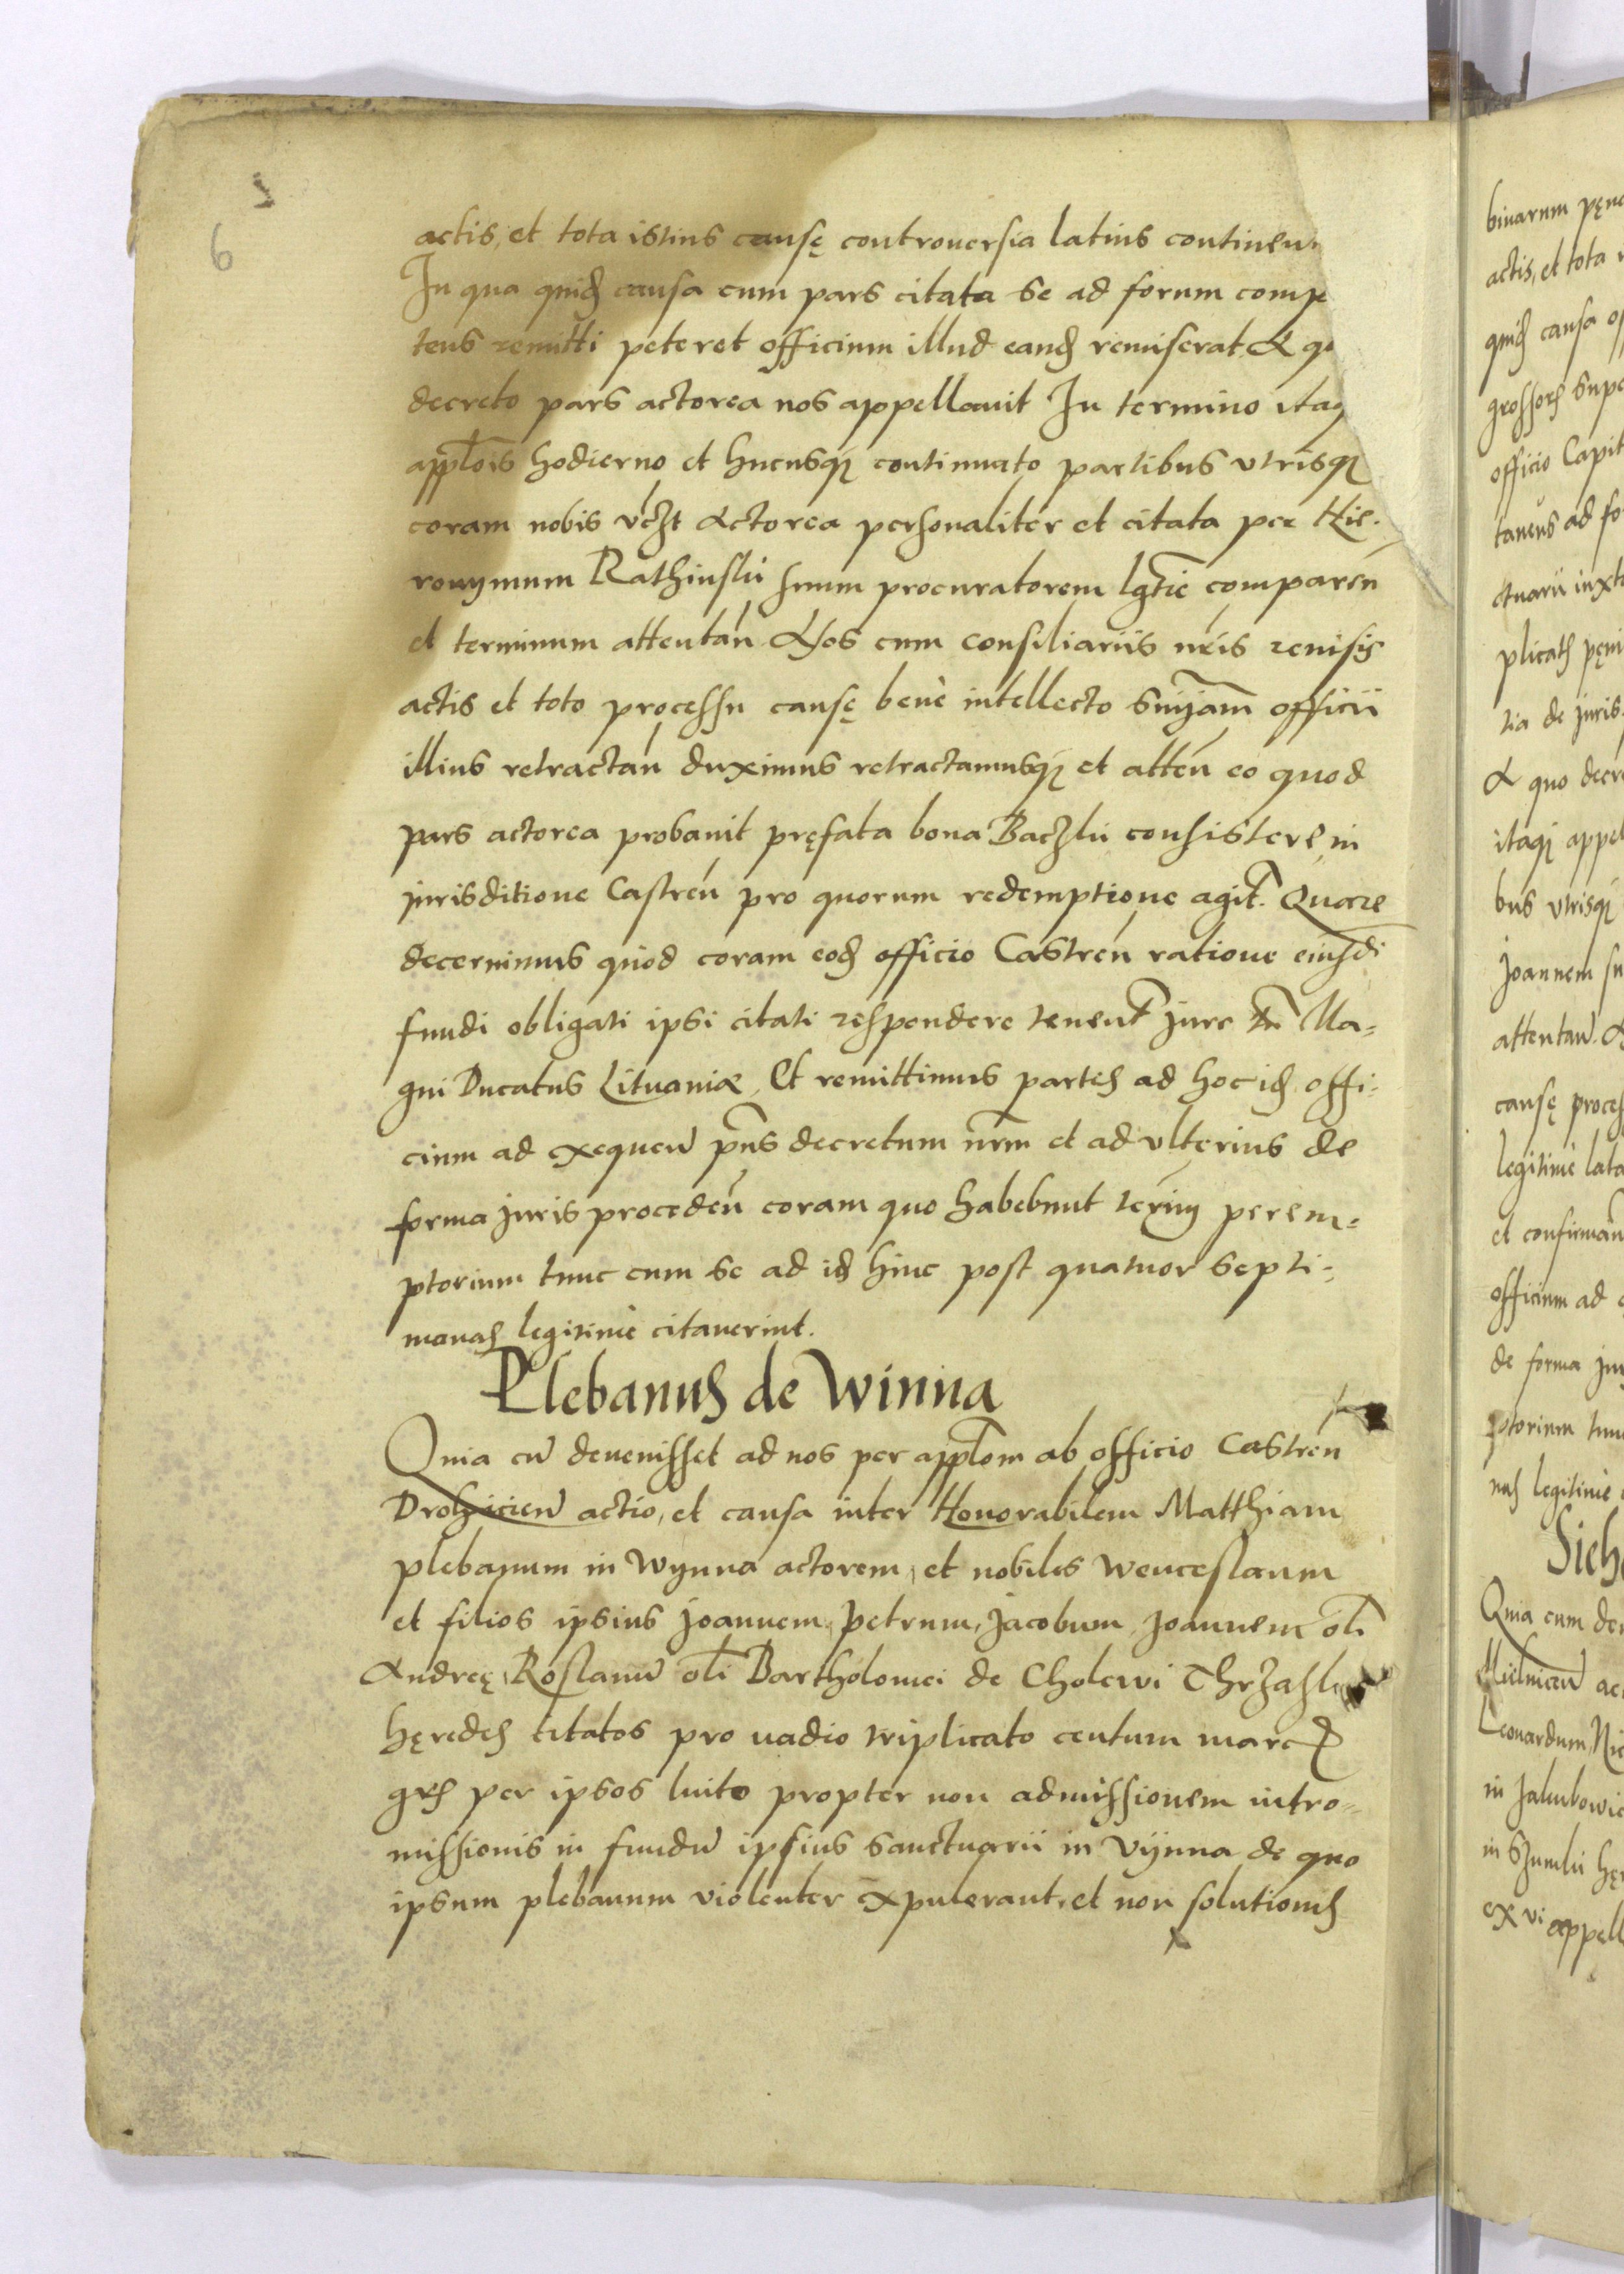 6
actis, et tota istius causę controuersia latius continen
In qua quid causa cum pars citata se ad forum compe
tens remitti peteret officium illud eand remiserat A quo
decreto pars actorea nos appellauit In termino itaq
applois hodierno et hucusq continuato partibus vtrisq
coram nobis vczt Actorea personaliter et citata per Hie-
ronymum Rathinsky suum procuratorem lgtie comparen
et terminum attentan Nos cum consiliariis nris reuisis
actis et toto processu causę bene intellecto snyam officii
illius retractan duximus retractamusq et atten eo quod
pars actorea probauit pręfata bona Baczki consistere in
jurisditione Castren pro quorum redemptione agit. Quare
decernimus quod coram eod officio Castren ratione eiusdi
fundi obligati ipsi citati respondere tenent jure tn Ma-
gni Ducatus Lituaniæ, Et remittimus partes ad hoc id offi-
cium ad exequen pns decretum nrm et ad vlterius de
forma juris proceden coram quo habebunt termi perem-
ptorium tunc cum se ad id hinc post quatuor septi-
manas legitime citauerint.
Plebanus de Winna
Quia cu deuenisset ad nos per applom ab officio Castren
Drohicien actio, et causa inter Honorabilem Matthiam
plebanum in Wynna actorem, et nobiles Wenceslaum
et filios ipsius Joannem, Petrum, Jacobum, Joannem oli
Andreę, Roslanu oli Bartholomei de Cholewi
hęredes citatos pro vadio triplicato centum marc
grs per ipsos luito propter non admissionem intro-
missionis in fundu ipsius sanctuarii in Vynna de quo
ipsum plebanum violenter expulerant, et non solutiones
binarum
actis, et tota
quid causa
grossors supe
officio Capit
taneus ad fo
ctuarii iuxta
plicats
tia de juris
A quo decre
itaq appel
bus vtrisq
Joannem su
attentan.
causę proces
legitime lata
et confirman
officium ad
de forma jur
ptorium tunc
nas legitime
Quia cum de
Mielnicen ac
Leonardum, Nic
in Jakubowic
in hęr
ex vi appell